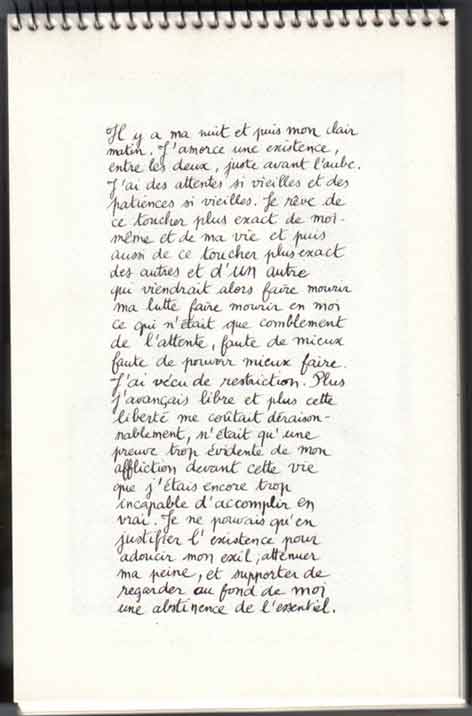 Il y a ma nuit et puis mon clair
matin. J'amorce une existence,
entre les deux, juste avant l'aube.
J'ai des attentes si vieilles et des
patiences si vieilles. Je rêve de
ce toucher plus exact de moi-
même et de ma vie et puis
aussi de ce toucher plus exact
des autres et d'UN autre
qui viendrait alors faire mourir
ma lutte faire mourir en moi
ce qui n'était que comblement
de l'attente, faute de mieux
faute de pouvoir mieux faire.
J'ai vécu de restriction. Plus
j'avançais libre et plus cette
liberté me coûtait déraison-
nablement, n'était qu'une
preuve trop évidente de mon
affliction devant cette vie
que j'étais encore trop
incapable d'accomplir en
vrai. Je ne pouvais qu'en
justifier l'existence pour
adoucir mon exil, atténuer
ma peine, et supporter de
regarder au fond de moi
une abstinence de l'essentiel.